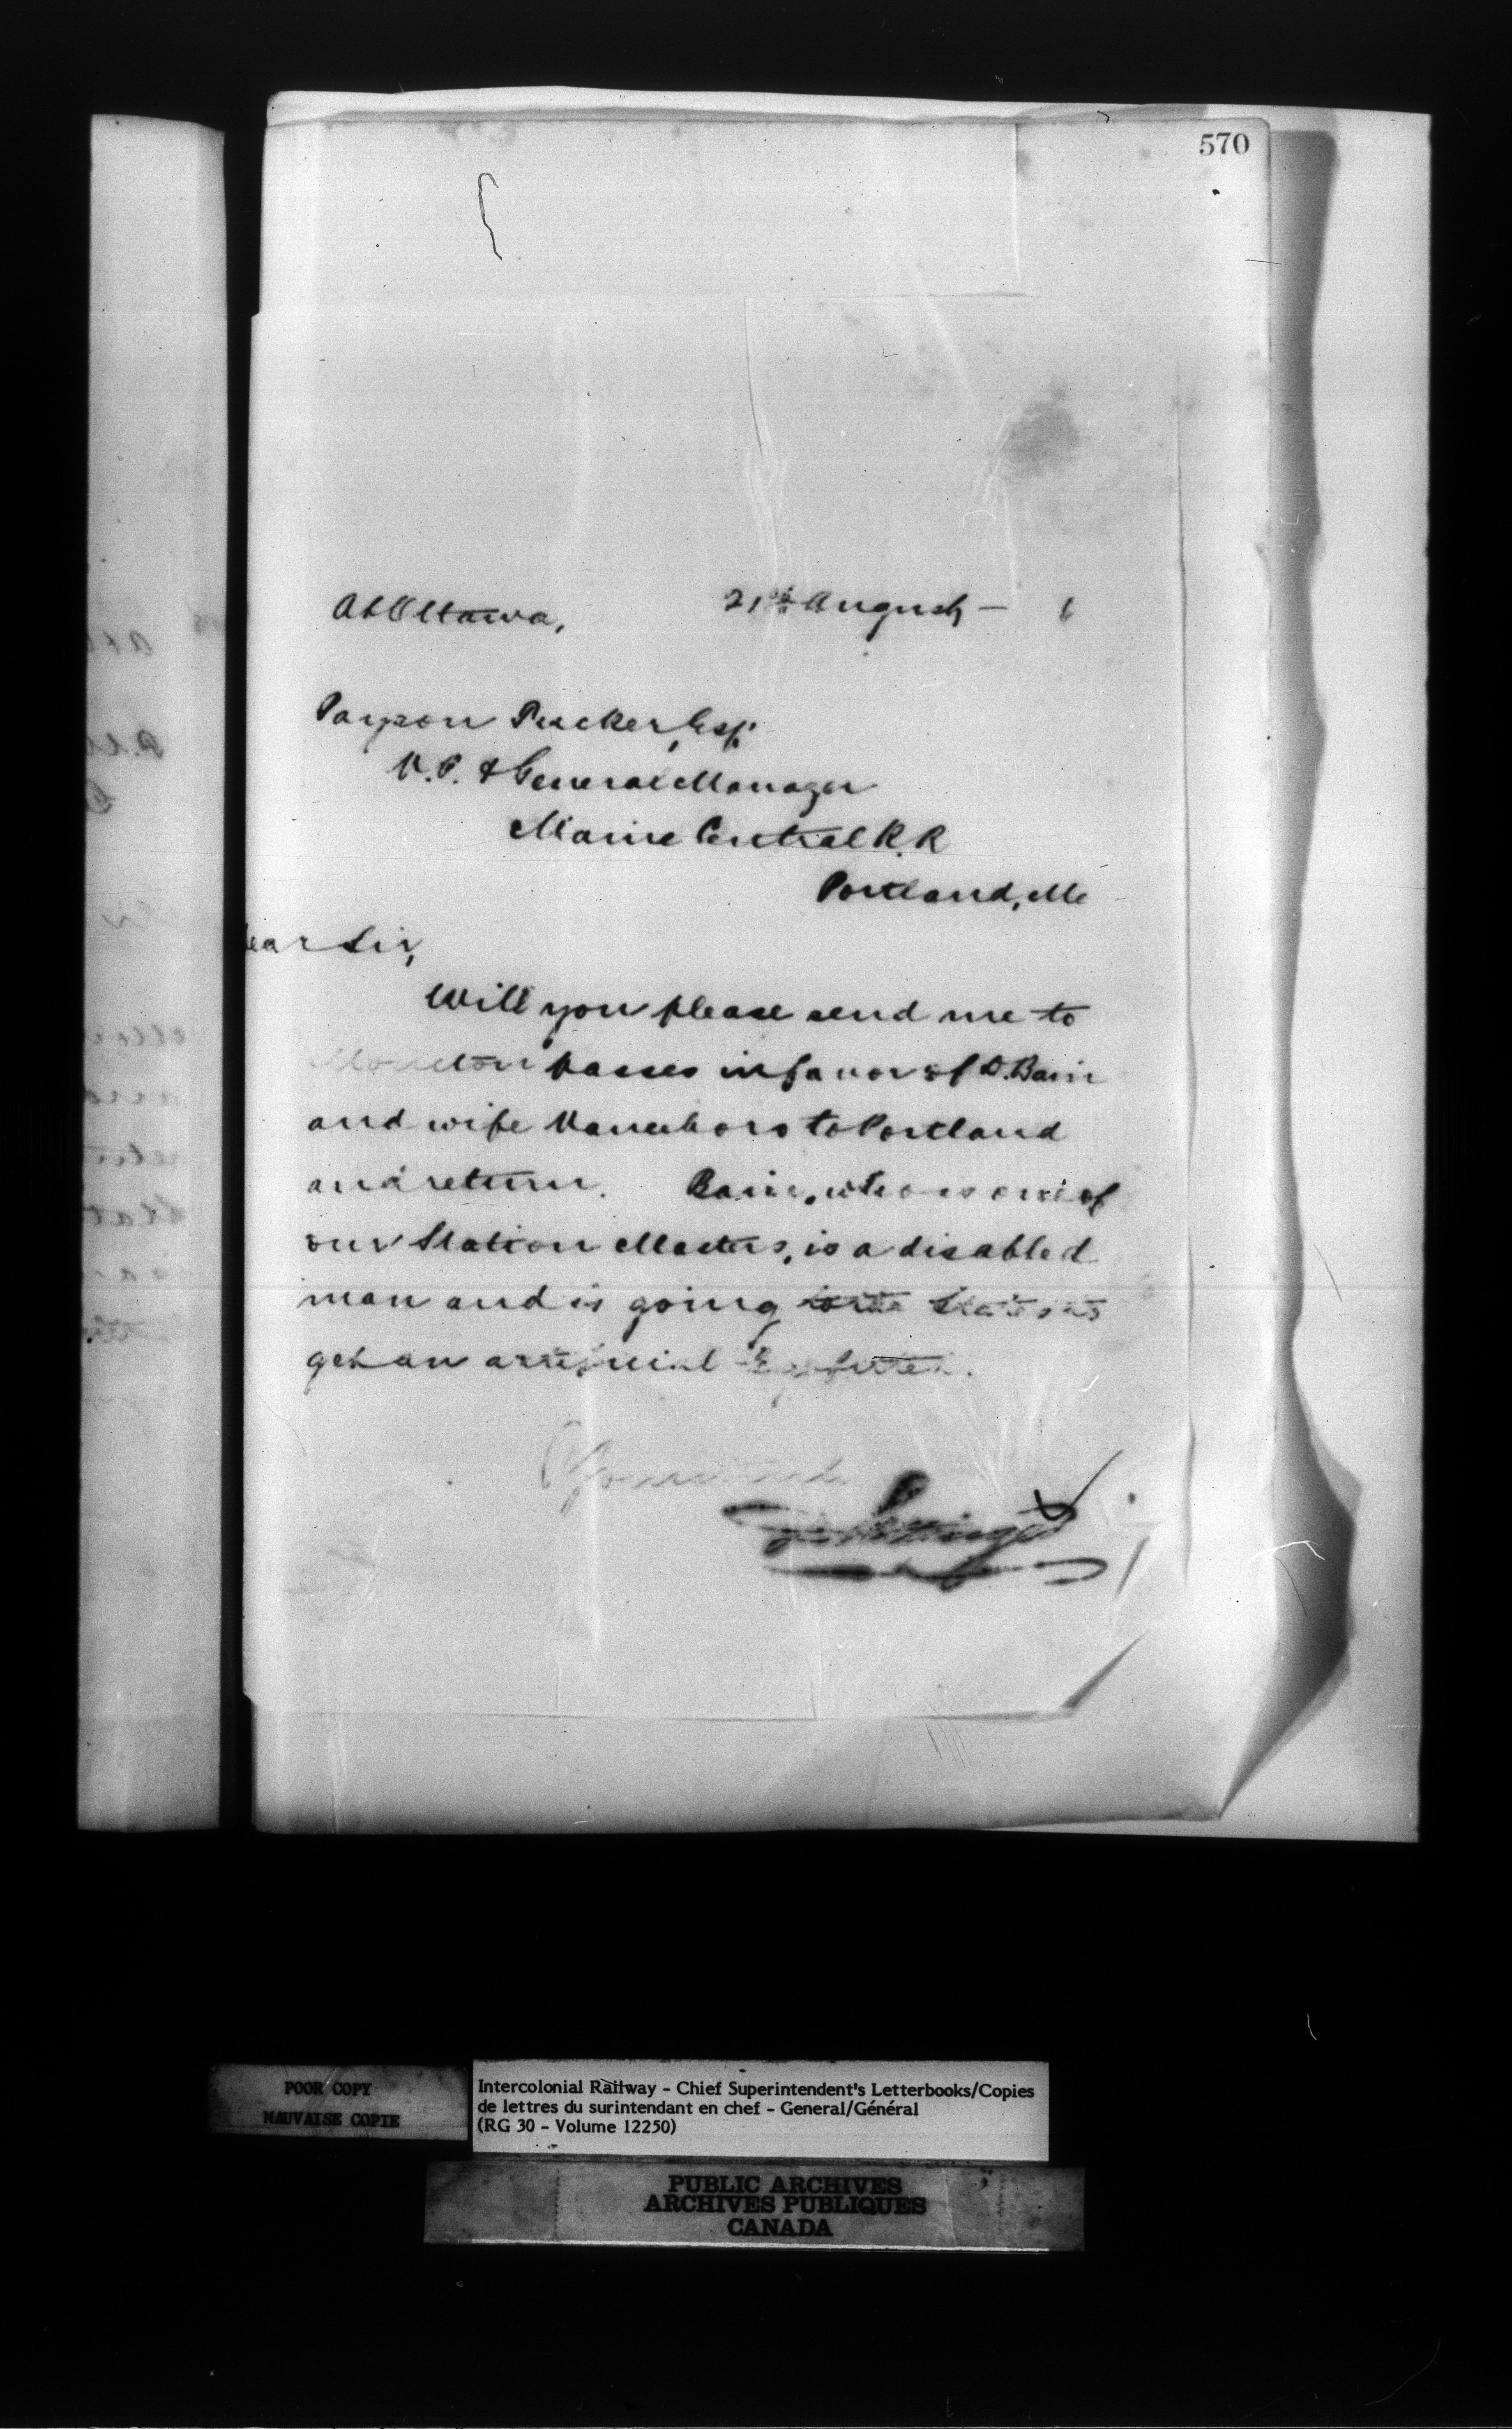 570
At Ottawa, 21st August — 6
Payson Tucker, Esq.
V.P. & General Manager
Maine Central R.R
Portland, Me
ear Sir,
Will you please send me to
Moncton passes in favor of D. Bain
and wife Vanceboro to Portland
and return. Bain, who is one of
our Station Masters, is a disabled
man and is going to the States to
get an artificial leg fitted.
Yours truly
Pottinger
POOR COPY
MAUVAISE COPIE
Intercolonial Railway - Chief Superintendent's Letterbooks/Copies
de lettres du surintendant en chef - General/Général
(RG 30 - Volume 12250)
PUBLIC ARCHIVES
ARCHIVES PUBLIQUES
CANADA